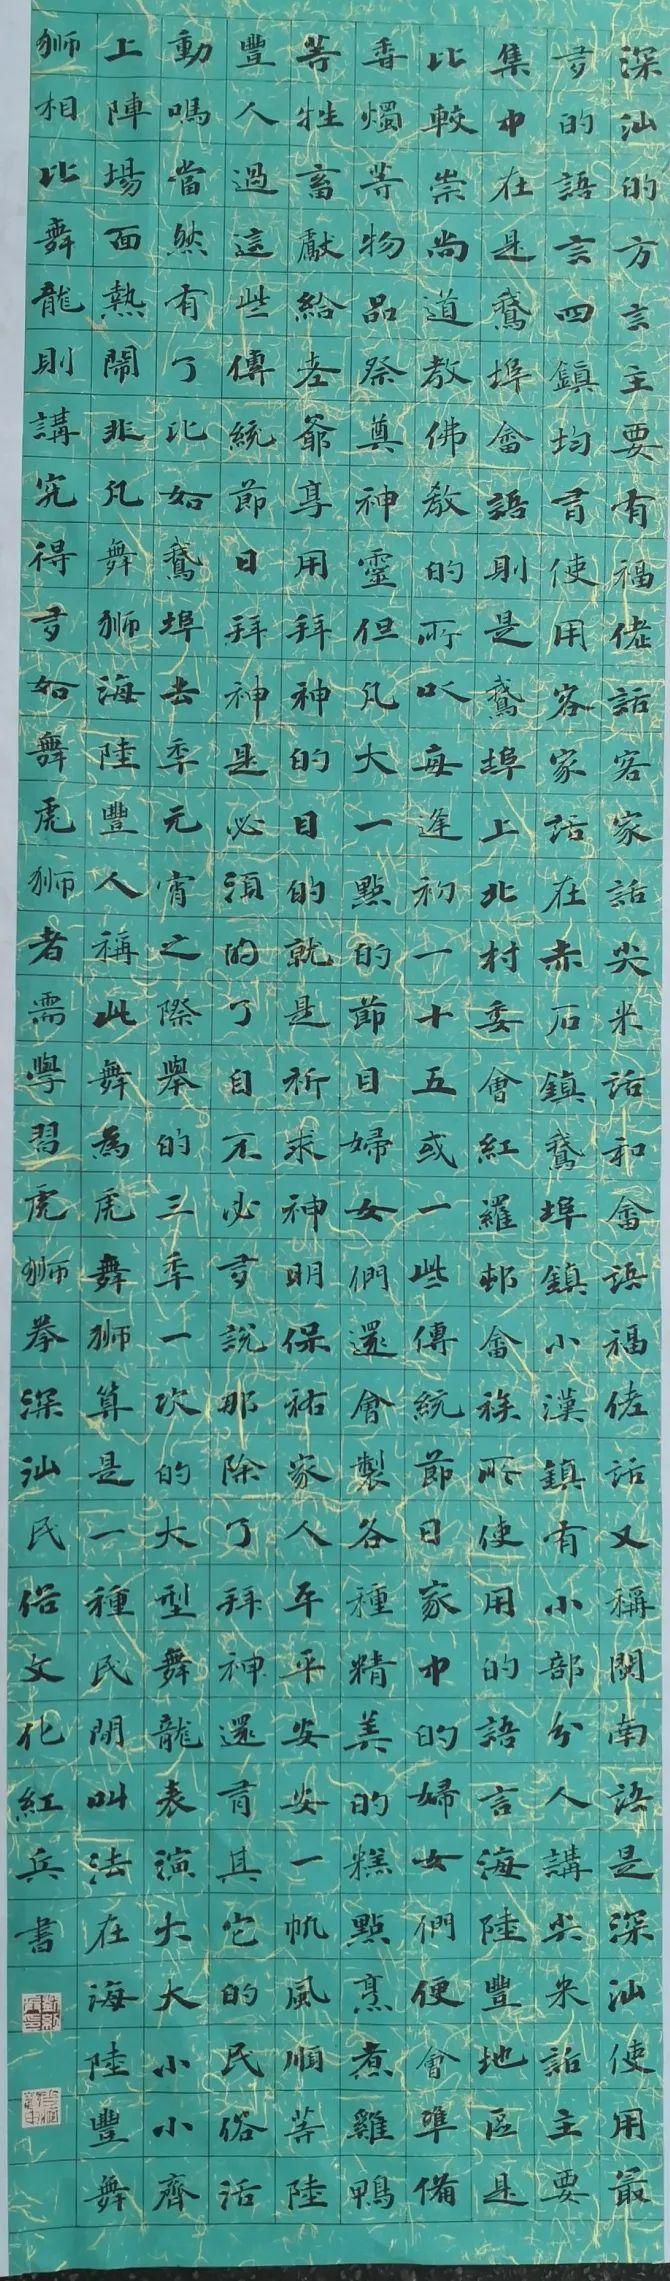 深汕的方言主要有福佬話客家話尖米話和畲語福佬話又稱閩南語是深汕使用最
多的語言四鎮均有使用客家話在赤石鎮鵞埠鎮小漠鎮有小部分人講尖米話主要
集中在是鵞埠畲語則是鵞埠上北村委會紅羅邨畲族所使用的語言海陸豐地區是
比較崇尚道教佛教的所以每逢初一十五或一些傳統節日家中的婦女們便會準備
香燭等物品祭奠神靈但凡大一點的節日婦女們還會製各種精美的糕點烹煮雞鴨
等牲畜獻給老爺享用拜神的目的就是祈求神明保祐家人平平安安一帆風順等陸
豐人過這些傳統節日拜神是必須的了自不必多說那除了拜神還有其它的民俗活
動嗎當然有了比如鵞埠去年元宵之際舉的三年一次的大型舞龍表演大大小小齊
上陣場面熱鬧非凡舞獅海陸豐人稱此舞為虎舞獅算是一種民間叫法在海陸豐舞
獅相比舞龍則講究得多如舞虎獅者需學習虎獅拳深汕民俗文化紅兵書